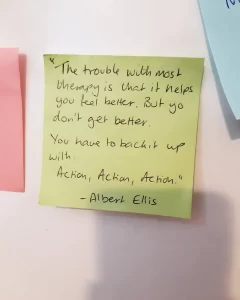 "The trouble with most
therapy is that it helps
you feel better. But yo
don't get better.
You have to back it up
with.
Action, Action, Action."
- Albert Ellis